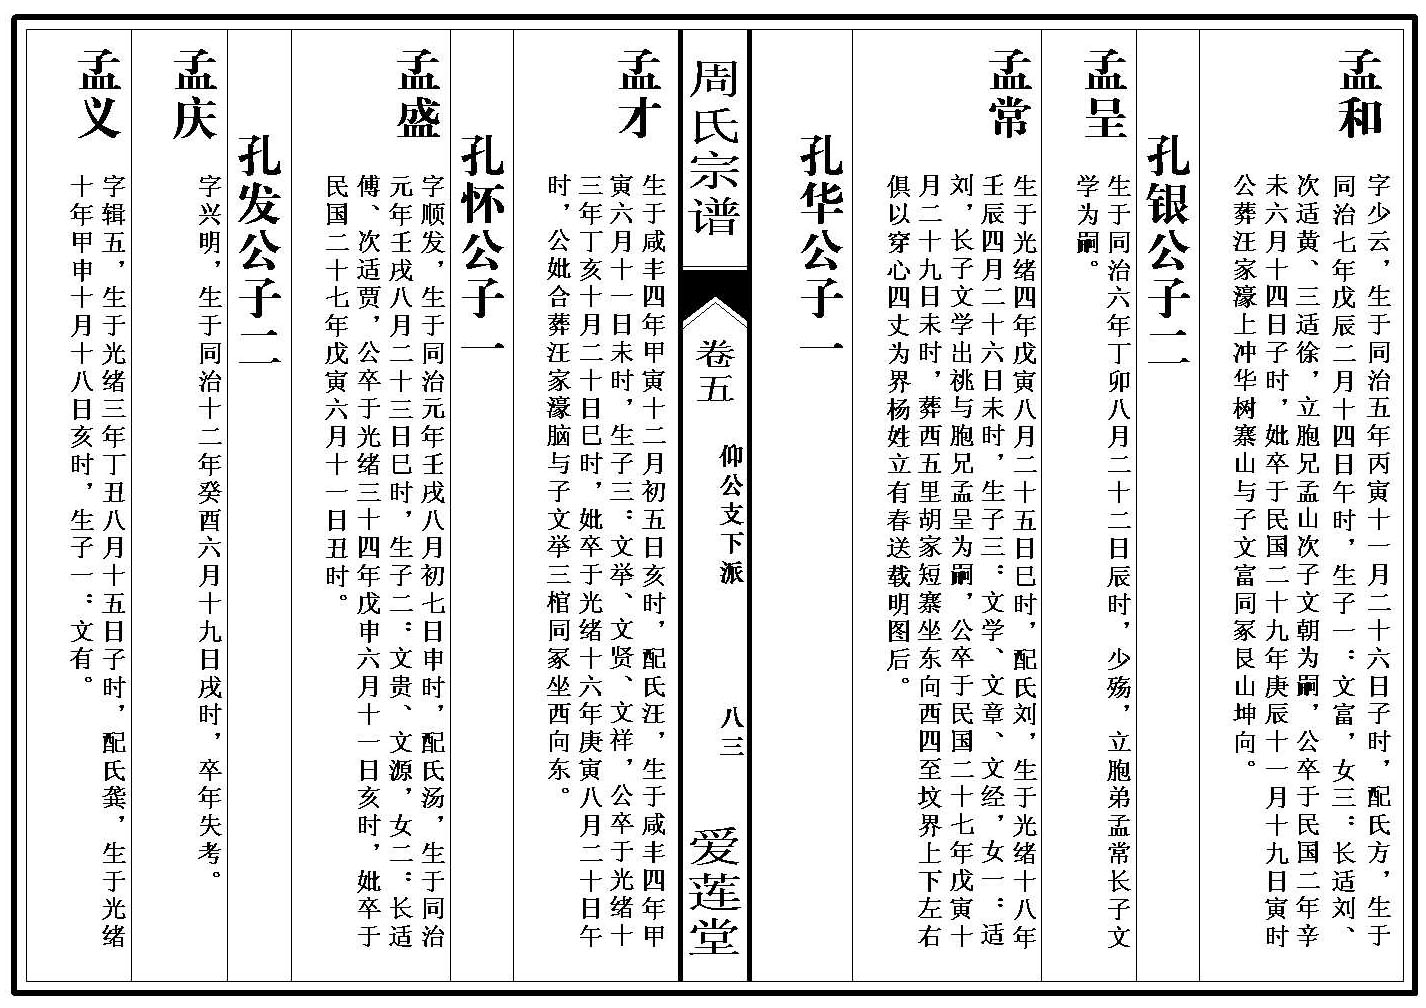 孟和
字少云，生于同治五年丙寅十一月二十六日子时，配氏方，生于
同治七年戊辰二月十四日午时，生子一：文富，女三：长适刘、
次适黄、三适徐，立胞兄孟山次子文朝为嗣，公卒于民国二年辛
未六月十四日子时，妣卒于民国二十九年庚辰十一月十九日寅时
公葬汪家濠上冲华树寨山与子文富同冢艮山坤向。
孔银公子二
孟呈
生于同治六年丁卯八月二十二日辰时，少殇，立胞弟孟常长子文
学为嗣。
孟常
生于光绪四年戊寅八月二十五日巳时，配氏刘，生于光绪十八年
壬辰四月二十六日未时，生子三：文学、文章、文经，女一：适
刘，长子文学出祧与胞兄孟呈为嗣，公卒于民国二十七年戊寅十
月二十九日未时，葬西五里胡家短寨坐东向西四至坟界上下左右
俱以穿心四丈为界杨姓立有春送载明图后。
孔华公子一
周氏宗谱
卷五
仰公支下派
八三
爱莲堂
孟才
生于咸丰四年甲寅十二月初五日亥时，配氏汪，生于咸丰四年甲
寅六月十一日未时，生子三：文举、文贤、文祥，公卒于光绪十
三年丁亥十月二十日巳时，妣卒于光绪十六年庚寅八月二十日午
时，公妣合葬汪家濠脑与子文举三棺同冢坐西向东。
孔怀公子一
孟盛
字顺发，生于同治元年壬戌八月初七日申时，配氏汤，生于同治
元年壬戌八月二十三日巳时，生子二：文贵、文源，女二：长适
傅、次适贾，公卒于光绪三十四年戊申六月十一日亥时，妣卒于
民国二十七年戊寅六月十一日丑时。
孔发公子二
孟庆
字兴明，生于同治十二年癸酉六月十九日戌时，卒年失考。
孟义
字辑五，生于光绪三年丁丑八月十五日子时，配氏龚，生于光绪
十年甲申十月十八日亥时，生子一：文有。